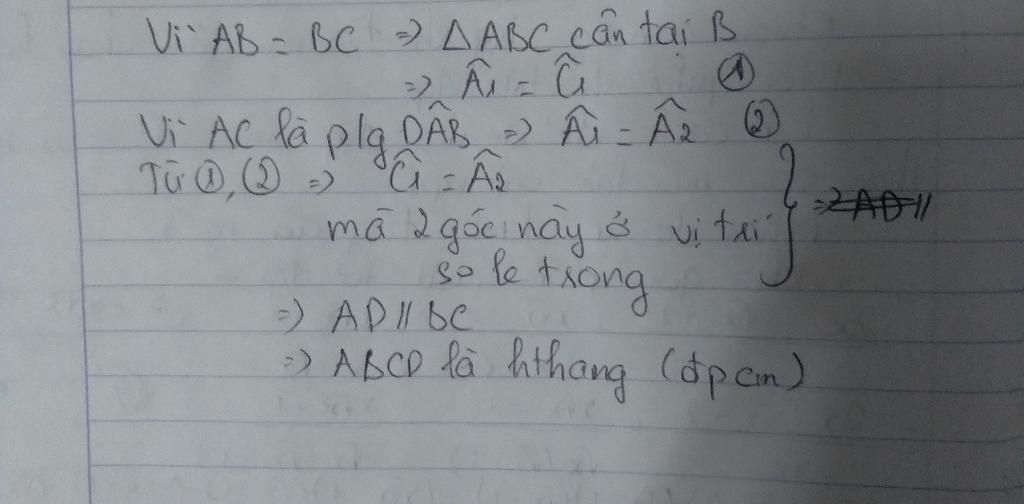 Vì AB = BC => ΔABC cân tại B
=> Â₁ = Ĉ₁ ①
Vì AC là p/g DÂB => Â₁ = Â₂ ②
Từ ①, ② => Ĉ₁ = Â₂
mà 2 góc này ở vị trí } => AD //
so le trong
=> AD // BC
=> ABCD là hthang (đpcm)